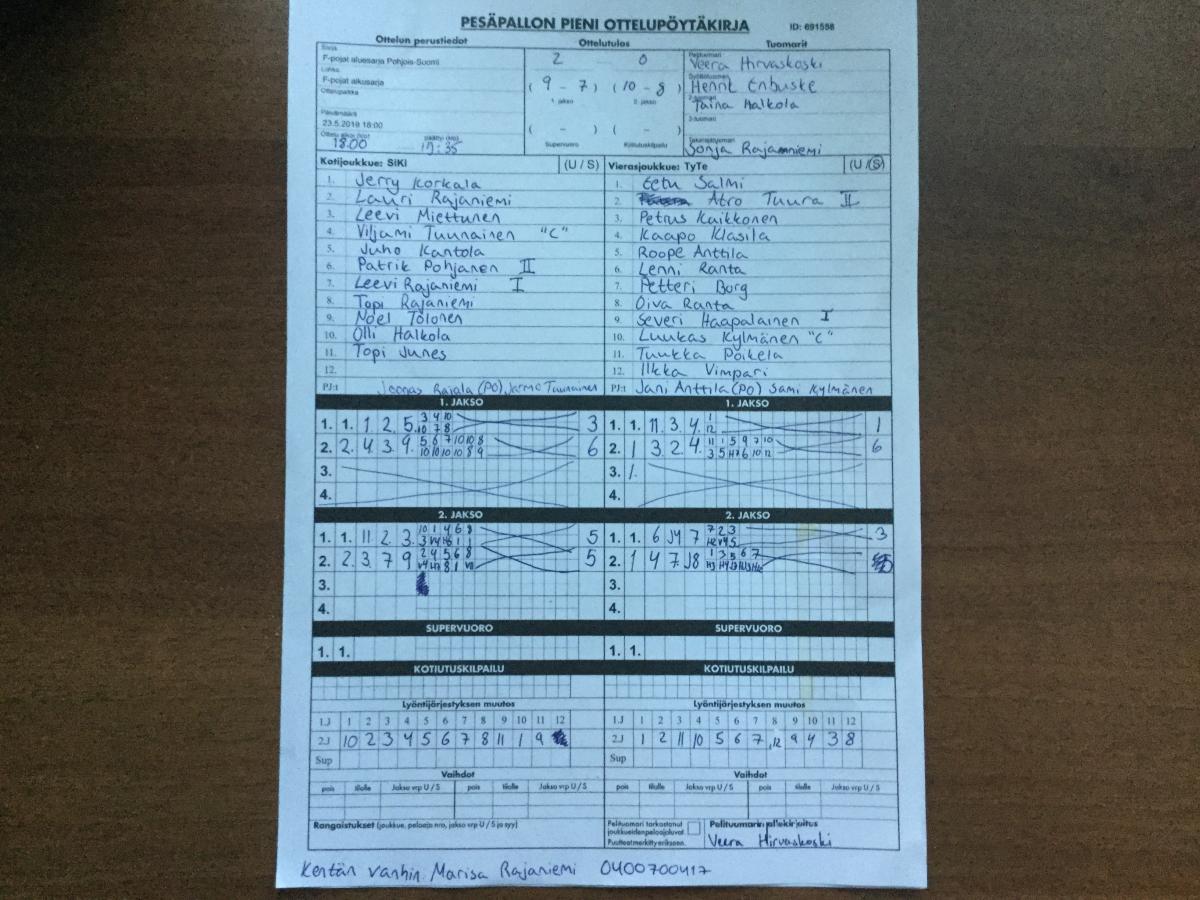 PESÄPALLON PIENI OTTELUPÖYTÄKIRJA ID: 691558
Ottelun perustiedot Ottelutulos Tuomarit
Sarja
F-pojat aluesarja Pohjois-Suomi
Lohko
F-pojat alkusarja
Ottelupaikka
Päivämäärä
23.5.2019 18:00
18:00 19:35
2 0
( 9 - 7 ) ( 10 - 8 )
1. jakso 2. jakso
( - ) ( - )
Supervuoro Kotiutuskilpailu
Pelituomari
Veera Hirvaskoski
Syöttötuomari
Henrik Enbuske
2-tuomari
Taina Halkola
3-tuomari
Takarajatuomari
Sonja Rajamniemi
Kotijoukkue: SiKi (U / S)
1. Jerry Korkala
2. Lauri Rajaniemi
3. Leevi Miettunen
4. Viljami Tuunainen "C"
5. Juho Kantola
6. Patrik Pohjanen II
7. Leevi Rajaniemi I
8. Topi Rajaniemi
9. Noel Tolonen
10. Olli Halkola
11. Topi Junes
12.
PJ:t Joonas Rajala (PO) Jarmo Tuunainen
Vierasjoukkue: TyTe (U / S)
1. Eetu Salmi
2. Atro Tuura II
3. Petrus Kaikkonen
4. Kaapo Klasila
5. Roope Anttila
6. Lenni Ranta
7. Petteri Borg
8. Oiva Ranta
9. Severi Haapalainen I
10. Luukas Kylmänen "C"
11. Tuukka Poikela
12. Ilkka Vimpari
PJ:t Jani Anttila (PO) Sami Kylmänen
1. JAKSO 1. JAKSO
1. 1. 1 2. 5. 3 4 10 3
10 7 8
2. 2. 4 3. 9. 5 6 7 10 10 8 6
10 10 10 10 8 9
3.
4.
1. 1. 11. 3. 4. 1 1
12
2. 1 3. 2 4. 11 1 5 9 7 10 6
3 5 H7 6 10 12
3. 1.
4.
2. JAKSO 2. JAKSO
1. 1. 11 2 3. 10 1 4 6 8 5
2. 2. 3 7 9 2 4 5 6 8 5
3.
4.
1. 1. 6 J4 7 7 2 3 3
2. 1 4 7. J8 1 3 5 6 7
3.
4.
SUPERVUORO SUPERVUORO
1. 1. 1. 1.
KOTIUTUSKILPAILU KOTIUTUSKILPAILU
Lyöntijärjestyksen muutos Lyöntijärjestyksen muutos
1.J 1 2 3 4 5 6 7 8 9 10 11 12 1.J 1 2 3 4 5 6 7 8 9 10 11 12
2.J 10 2 3 4 5 6 7 8 11 1 9 2.J 1 2 11 10 5 6 7 12 9 4 3 8
Sup Sup
Vaihdot Vaihdot
pois tilalle Jakso vrp U / S pois tilalle Jakso vrp U / S pois tilalle Jakso vrp U / S pois tilalle Jakso vrp U / S
Rangaistukset (joukkue, pelaaja nro, jakso vrp U / S ja syy)
Pelituomari tarkastanut
joukkueiden pelaajaluvat.
Puutteet merkitty erikseen.
Pelituomarin allekirjoitus
Veera Hirvaskoski
Kentän vanhin Marisa Rajaniemi 0400700417